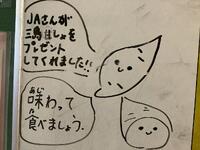 JAさんが
三島甘しょを
プレゼント
してくれました!!
味わって
食べましょう.